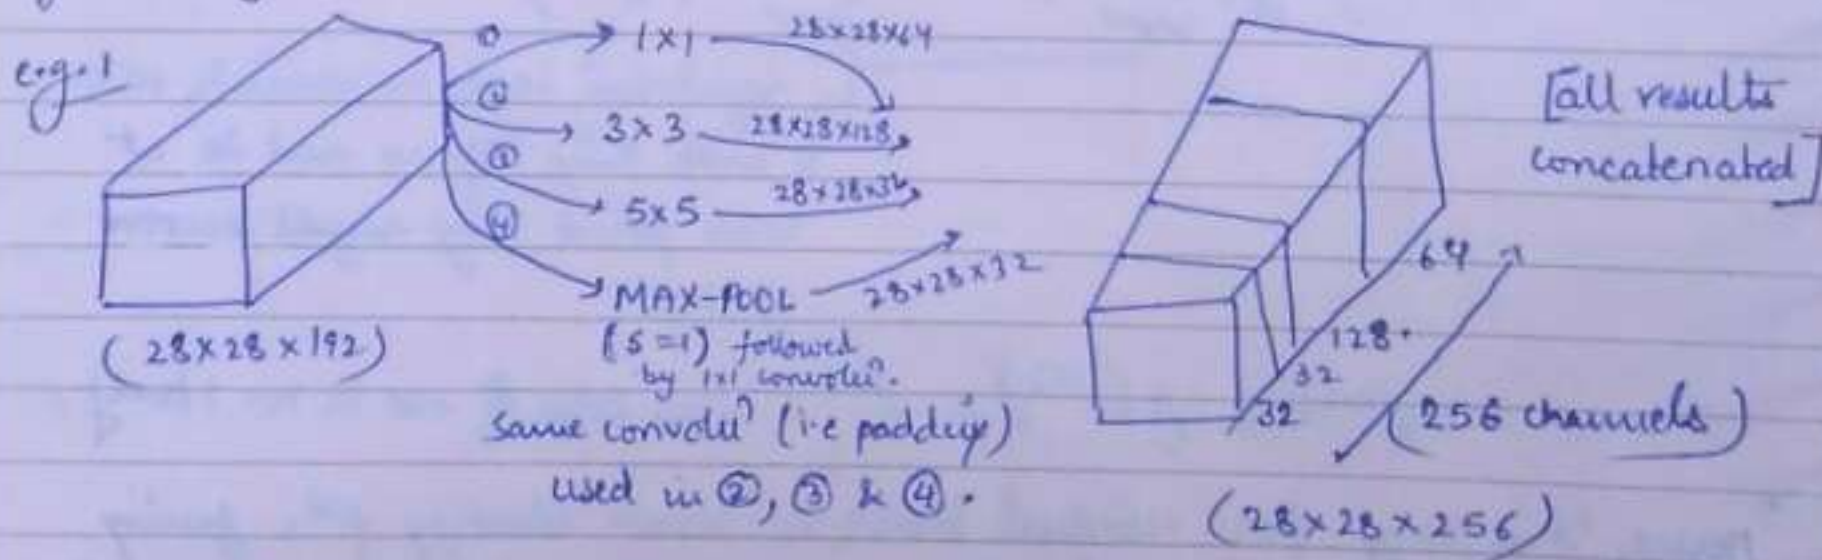 e.g.1
① → 1×1 28×28×64
② → 3×3 28×28×128
③ → 5×5 28×28×32
④ → MAX-POOL 28×28×32
(s=1) followed
by 1×1 convoluⁿ.
same convoluⁿ (i.e padding)
used in ②, ③ & ④.
(28×28×192)
[all results
concatenated]
64
128
32
32
(256 channels)
(28×28×256)